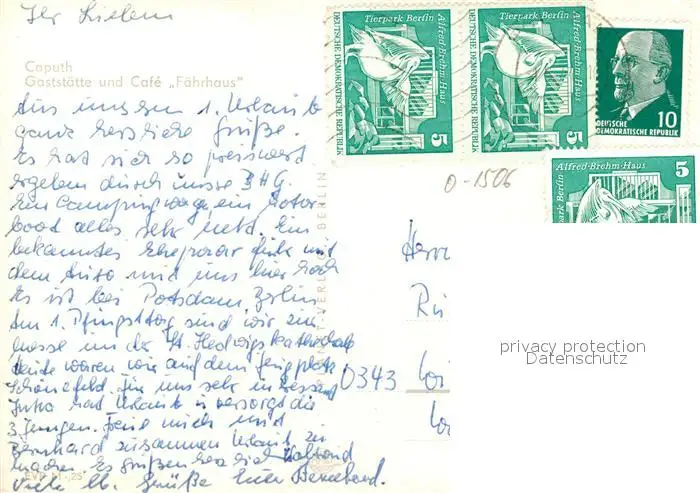 Ihr Lieben
Caputh
Gaststätte und Café „Fährhaus"
Aus unserem 1. Urlaub
ganz herzliche Grüße.
Es hat sich so preiswert
ergeben durch unsere BHG.
Ein Campingwagen, ein Motor
boot alles sehr nett. Ein
bekanntes Ehepaar fuhr mit
dem Auto mit uns hier hoch
Es ist bei Potsdam, Berlin
Am 1. Pfingsttag sind wir zur
Messe in der St. Hedwigskathedrale
heute waren wir auf dem Flugplatz
Schönefeld. Für uns sehr interessant
Jutta hat Urlaub u. versorgt die
3 Jungen. Freue mich mit
Bernhard zusammen Urlaub zu
machen. Es grüßen herzlich
Viele lb. Grüße Euer Bernhard.
EVP M -,25
VERLAG BERLIN
Tierpark Berlin
Alfred-Brehm-Haus
DEUTSCHE DEMOKRATISCHE REPUBLIK
5
Tierpark Berlin
Alfred-Brehm-Haus
DEUTSCHE DEMOKRATISCHE REPUBLIK
5
10
DEUTSCHE
DEMOKRATISCHE REPUBLIK
Alfred-Brehm-Haus
5
Tierpark Berlin
0-1506
Herrn
0343
privacy protection
Datenschutz